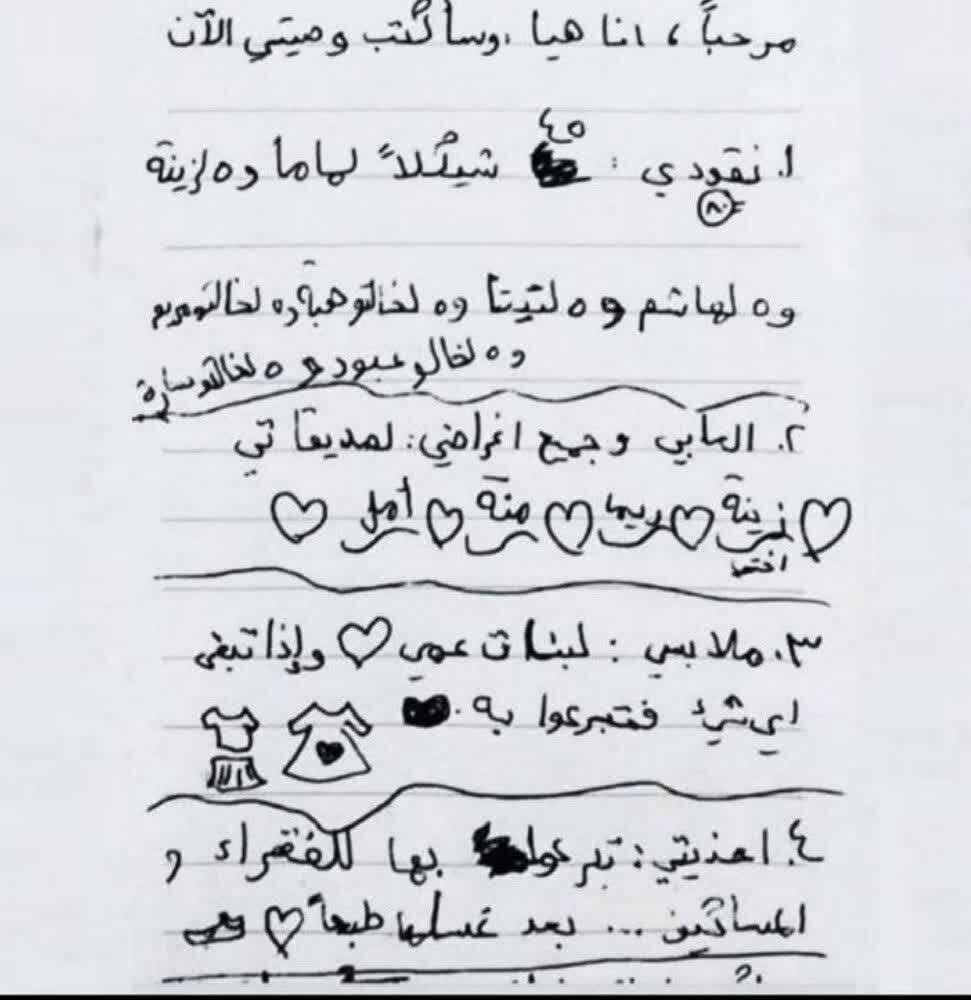 مرحباً، انا هيا، وسأكتب وصيتي الآن
٤٥
١. نقودي : شيكلاً لماما و٥ لزينة
٨٠
و٥ لهاشم و ٥ لتيتا و٥ لخالتو هبة و٥ لخالتو مريم
و ٥ لخالو عبود و ٥ لخالتو سارة
٢. العابي و جميع اغراضي: لصديقا تي
زينة ريما منة أمل
اختي
٣. ملابسي : لبنات عمي وإذا تبقى
اي شيء فتبرعوا به.
٤. احذيتي: تبرعوا بها للفقراء و
المساكين ... بعد غسلها طبعاً